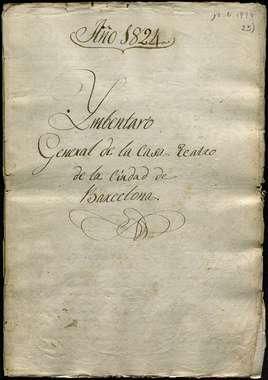 Año 1824
Ymbentaro
General de la Casa Teatro
de la Ciudad de
Barcelona.